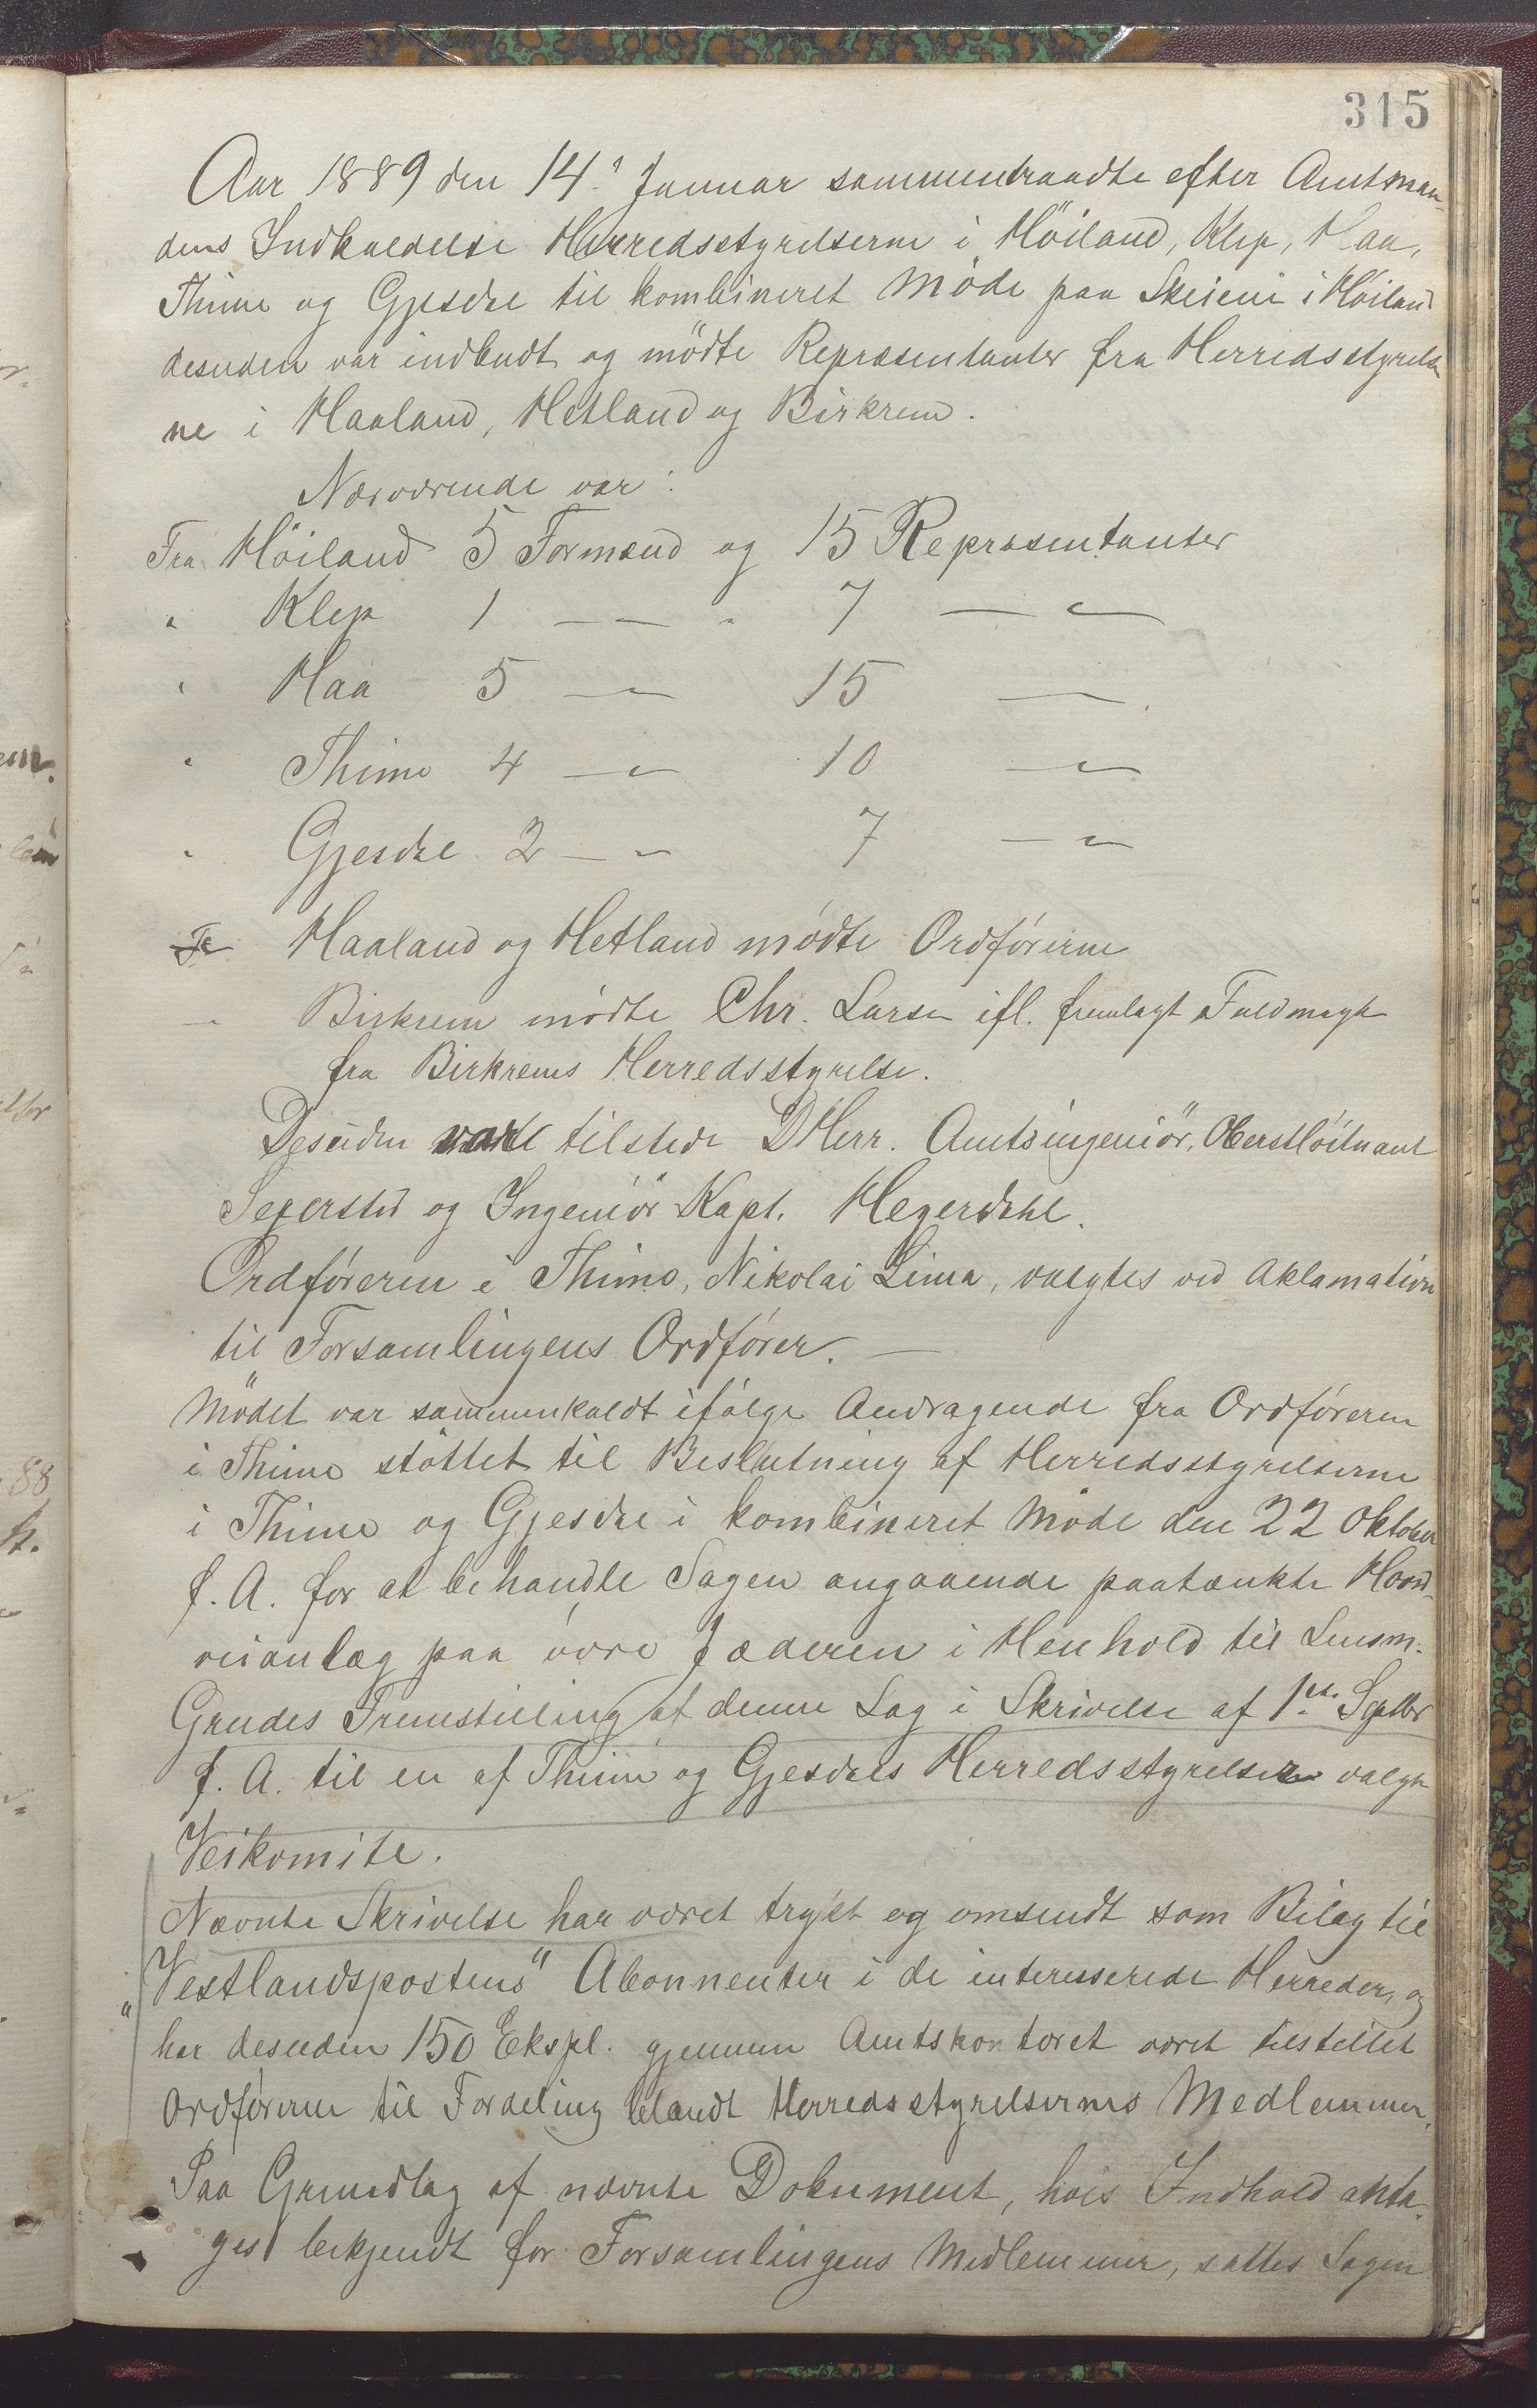 315
Aar 1889 den 14de Januar sammentraadte efter Amtman-
dens Indkaldelse Herredsstyrelserne i Höiland, Klep, Haa,
Thime og Gjesdal til kombineret Möde paa Skeiene i Höiland
desuden var indbudt og mödte Repræsentanter fra Herredsstyrelser
ne i Haaland, Hetland og Birkrem.
Nærværende var:
Fra Höiland 5 Formænd og 15 Repræsentanter
" Klep 1 — " — " 7 — " —
" Haa 5 — " — 15 — " —
" Thime 4 — " — 10 — " —
" Gjesdal 2 — " — 7 — " —
Fr Haaland og Hetland mödte Ordförerne
— " Birkrem mödte Chr. Larsen ifl. fremlagt Fuldmagt
fra Birkrems Herredsstyrelse.
Desuden var tilstede DHerr. Amtsingeniör, Oberstlöitnant
Sejersted og Ingeniör Kapt. Hegerdahl.
Ordföreren i Thime, Nikolai Lima, valgtes ved Aklamation
til Forsamlingens Ordförer. —
Mödet var sammenkaldt ifölge Andragende fra Ordföreren
i Thime stöttet til Beslutning af Herredsstyrelserne
i Thime og Gjesdal i kombineret Möde den 22 Oktober
f. A. for at behandle Sagen angaaende paatænkte Hoved-
veianlæg paa övre Jæderen i Henhold til Lensm.
Grudes Fremstilling af denne Sag i Skrivelse af 1ste Septbr
f. A. til en af Thime og Gjesdals Herredsstyrelser valgt
Veikomite.
Nævnte Skrivelse har været trykt og omsendt som Bilag til
"Vestlandspostens" Abonnenter i de interesserede Herreder, og
har desuden 150 Ekspl. gjennem Amtskontoret været tilstillet
Ordförerne til Fordeling blandt Herredsstyrelsernes Medlemmer.
Paa Grundlag af nævnte Dokument, hvis Indhold anta-
ges bekjendt for Forsamlingens Medlemmer, sattes Sagen